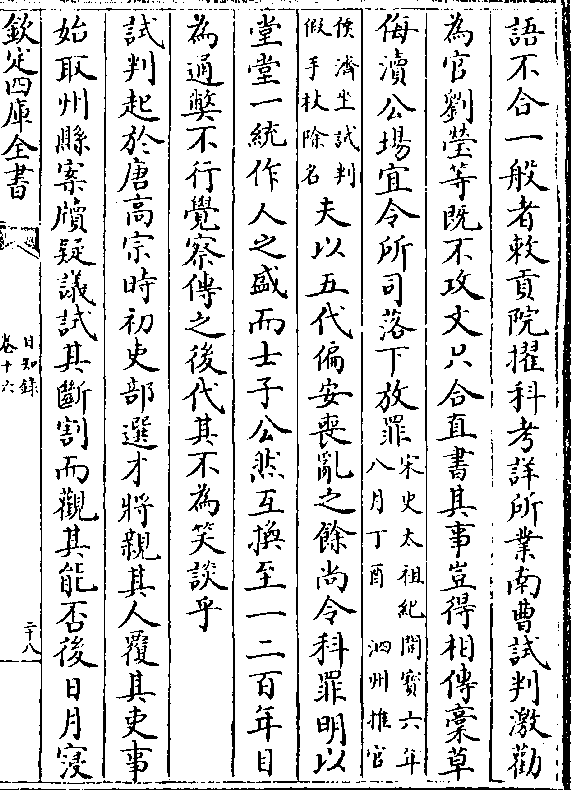 語不合一般者敕貢院擢科考詳所業南曹試判激勸
為官劉瑩等既不攻文只合直書其事豈得相傳藁草
侮瀆公場宜令所司落下放罪宋史太祖紀開寶六年八月丁酉泗州推官
侯濟坐試判假手杖除名夫以五代偏安喪亂之餘尚令科罪明以
堂堂一統作人之盛而士子公然互換至一二百年目
為通弊不行覺察傳之後代其不為笑談乎
試判起於唐高宗時初吏部選才將親其人覆其吏事
始取州縣案牘疑議試其斷割而觀其能否後日月寖
欽定四庫全書
日知錄
卷十六
二十八